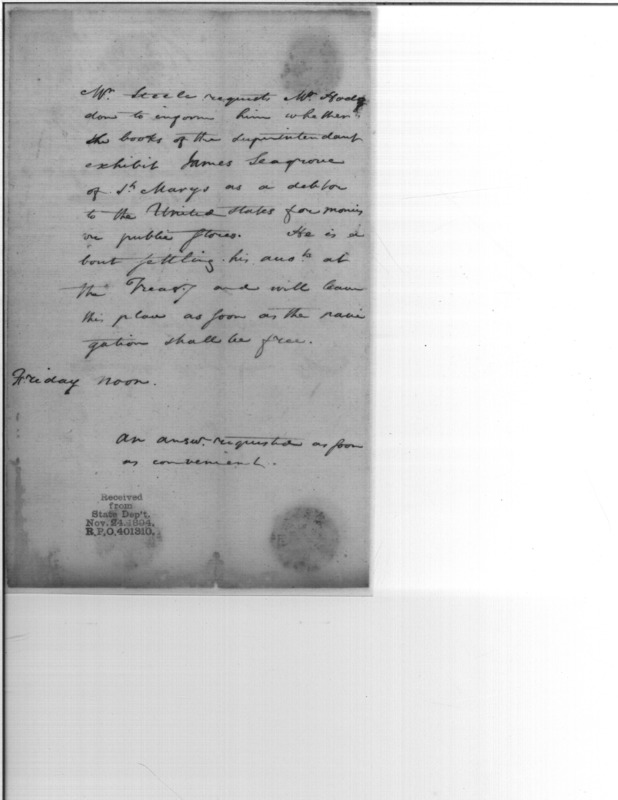 Mr. Steele requests Mr. Hodg
don to inform him whether
the books of the Superintendant
exhibit James Seagrove
of St. Marys as a debtor
to the United States for monies
or public stores. He is a
bout settling his accts. at
the Treasy. and will leave
this place as soon as the navi
gation shall be free.
Friday noon.
An answr. requested as soon
as convenient.
Received
from
State Dep't.
Nov. 24, 1894.
R.P.O. 401310.